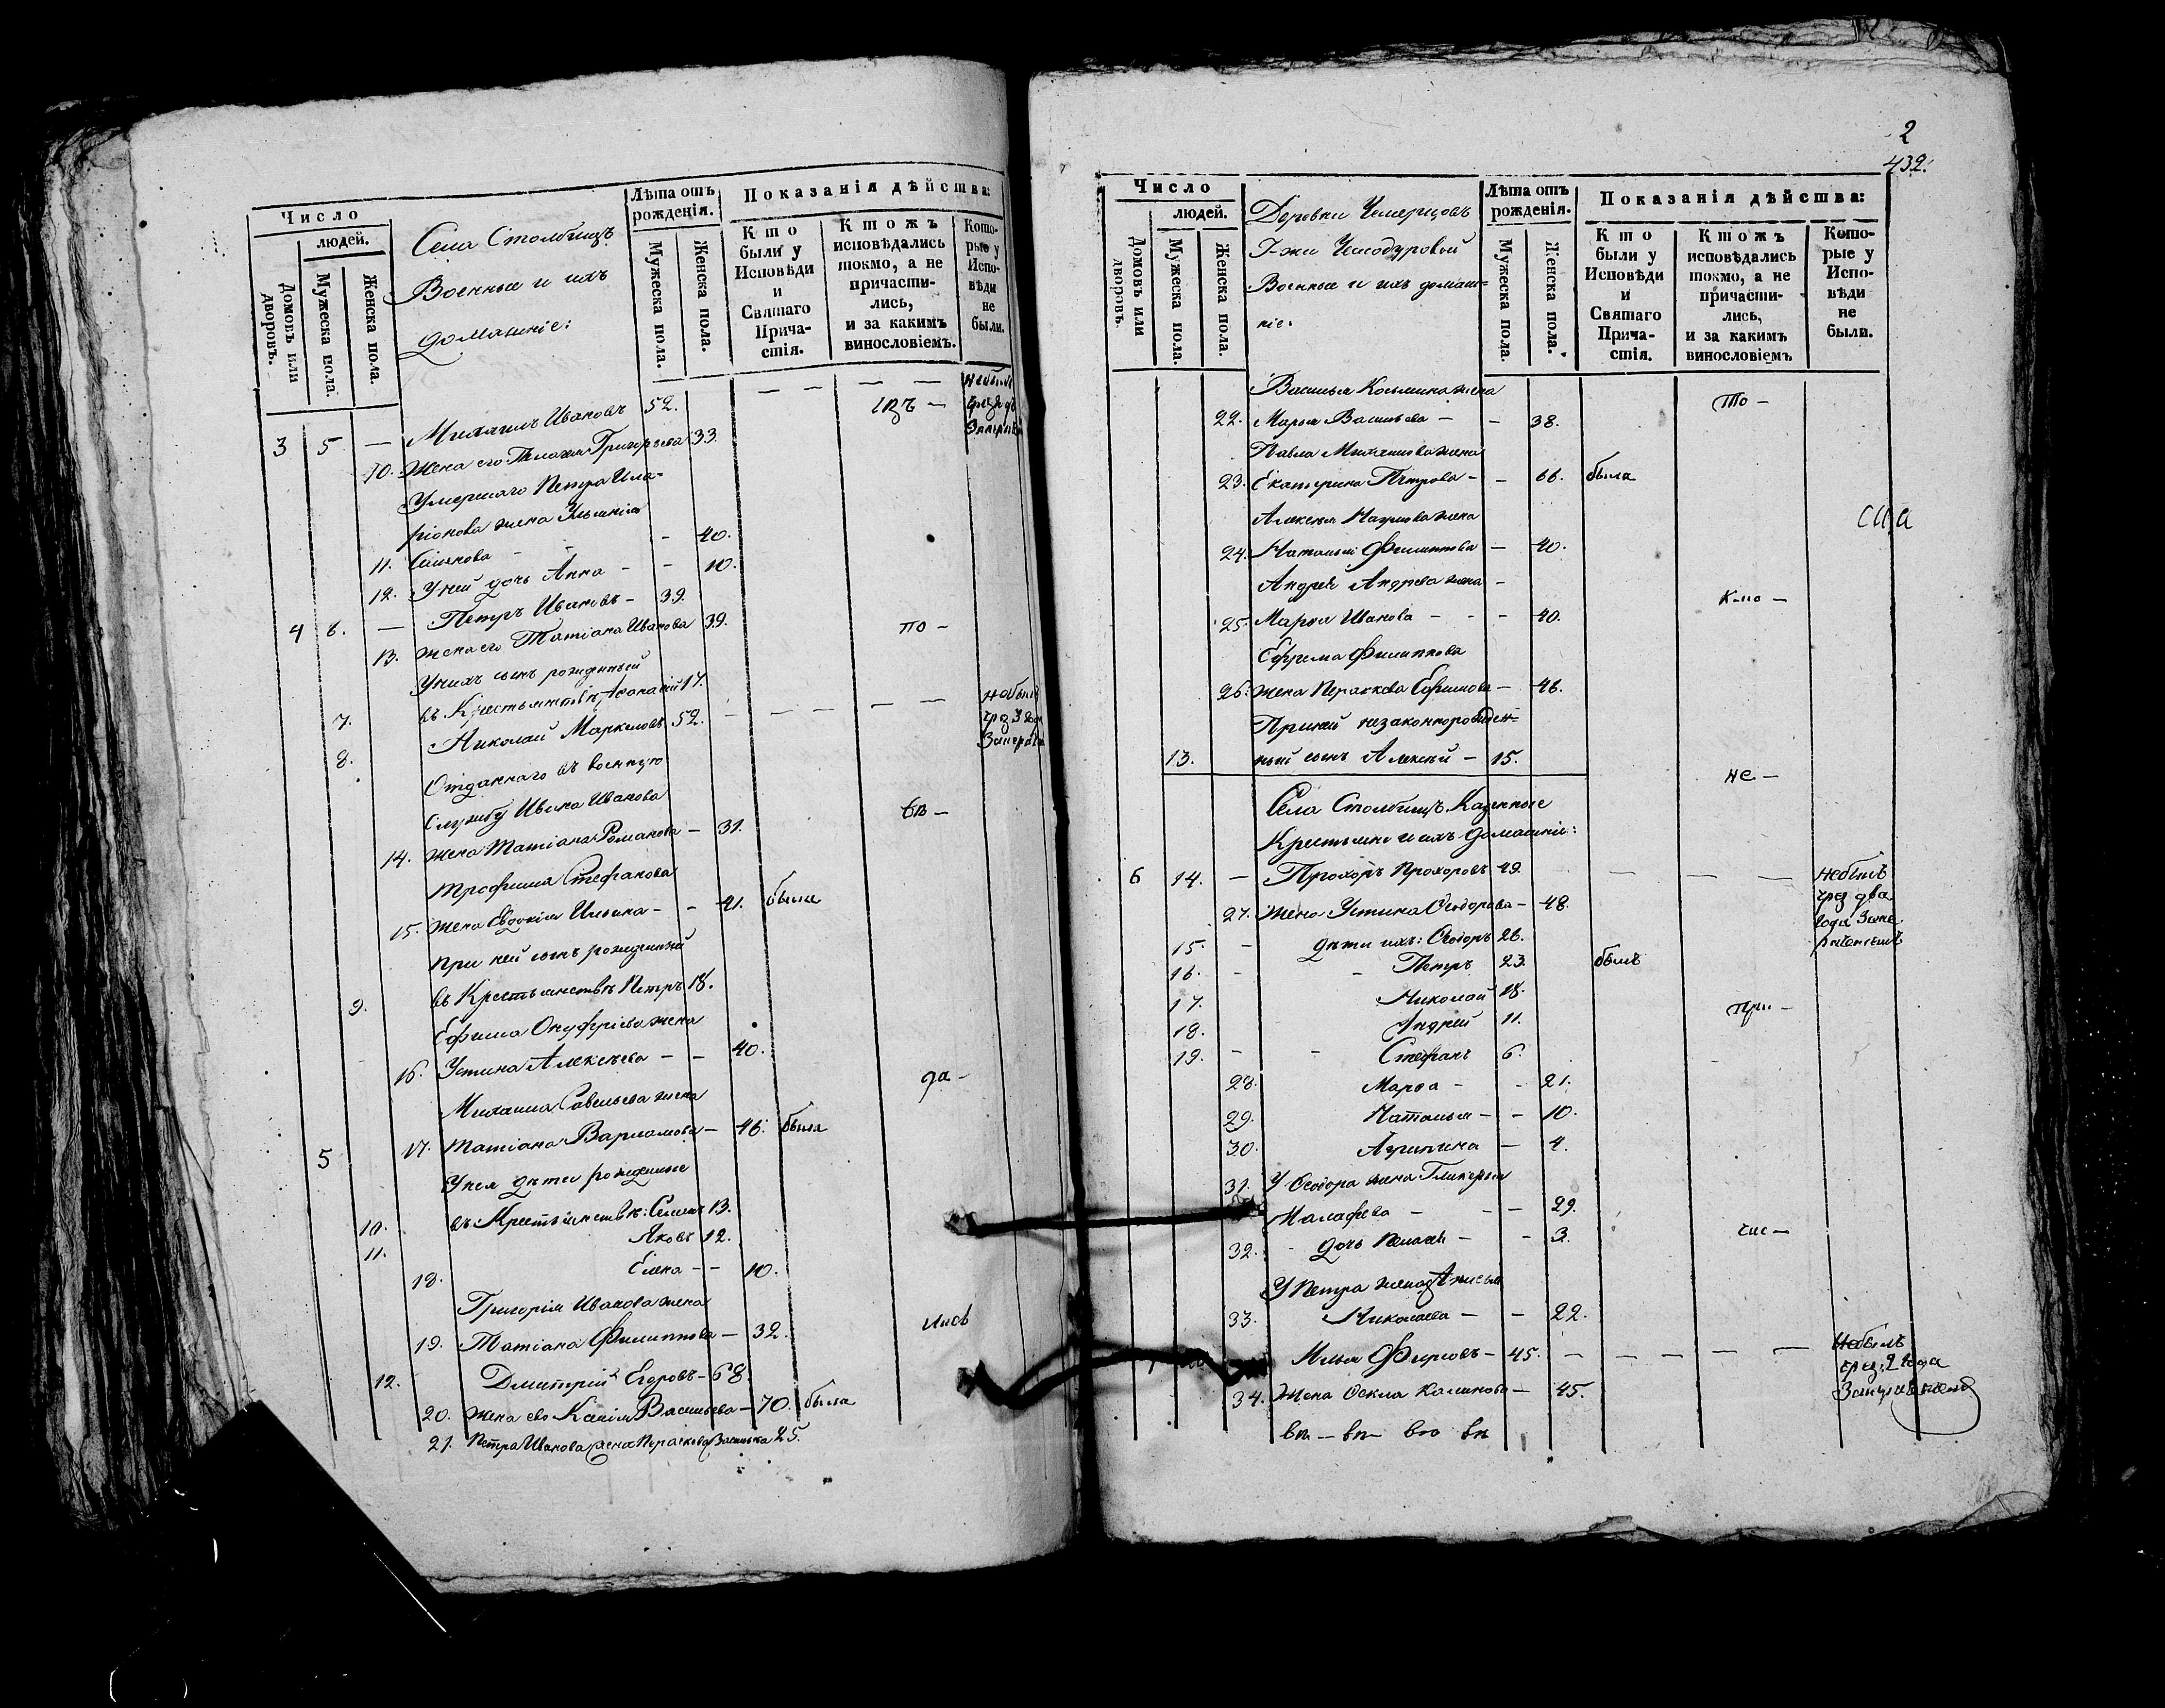 Число
людей.
Домовъ или дворовъ.
Мужеска пола.
Женска пола.
Села Столбищъ
Военные и ихъ
домашніе:
Лѣта отъ рожденія.
Мужеска пола.
Женска пола.
Показанія дѣйства:
Кто были у Исповѣди и Святаго Прича-стія.
Ктожъ исповѣдались токмо, а не причасти-лись, и за какимъ винословіемъ.
Кото-рые у Испо-вѣди не были.
3 5 — Михаилъ Ивановъ 52. — — — — небылъ
10. Жена его Григорьева 33.
Умершаго Петра Ила-
ріонова жена
11. — — 40.
12. У ней дочь Анна — — 10.
4 6. — Петръ Ивановъ — 39.
13. Жена его Татіана Иванова 39. по —
У нихъ сынъ рожденный
7. въ Крестьянствѣ 17.
8. Николай Маркеловъ 52. — — — — — небылъ
Отданнаго въ военную
службу Ивана Иванова
14. Жена Татіана Романова — 31.
Трофима Стефанова
15. Жена Евдокія Ильина — — 41. была
при ней сынъ рожденный
9. въ Крестьянствѣ Петръ 18.
Ефима Онуфріева жена
16. Устина Алексѣева — — 40.
да —
Михаила Савельева жена
5 17. Татіана Варламова — 46. была
У нея дѣти рожденные
10. въ Крестьянствѣ: Семенъ 13.
11. Яковъ 12.
18. Елена — — 10.
Григорія Иванова жена
19. Татіана Филиппова — 32. лись
12. Дмитрій Егоровъ — 68.
20. Жена ево Васильева — 70. была
21. Петра Иванова жена Параскева Васильева 25.
2
432.
Число
людей.
Домовъ или дворовъ.
Мужеска пола.
Женска пола.
Деревни
Г-жи
Военные и ихъ домаш-
ніе:
Лѣта отъ рожденія.
Мужеска пола.
Женска пола.
Показанія дѣйства:
Кто были у Исповѣди и Святаго Прича-стія.
Ктожъ исповѣдались токмо, а не причасти-лись, и за какимъ винословіемъ
Кото-рые у Испо-вѣди не были.
Василья Козьмина жена
22. Марья Васильева — — 38. то —
Павла жена
23. Екатерина Петрова — — 66. была
Алексѣя жена
24. Наталья Филиппова — 40.
Андрея Андреева жена —
25. Марья Иванова — — — 40.
Ефрема Филиппова
26. жена Параскева Ефимова — 46.
При ней незаконнорожден-
13. ный сынъ Алексѣй — 15.
не —
Села Столбищъ Казенные
Крестьяне и ихъ домашніе:
6 14. — Прохоръ Прохоровъ 49. — — — — небылъ
чрез два
года
27. Жена Устина Ѳеодорова — 48.
15. — дѣти ихъ: Ѳеодоръ 26.
16. — — Петръ 23. былъ
17. Николай 18.
при —
18. Андрей 11.
19. — — Стефанъ 6.
28. Марѳа — — 21.
29. Наталья — — 10.
30. Агрипина — 4.
31. У Ѳеодора жена Гликерья
Малафѣева — — — 29.
32. дочь — — 3.
У Петра жена Анисья
33. Николаева — — 22.
Илья Фирсовъ — 45. — — — — — небылъ
34. Жена Ѳекла — 45.